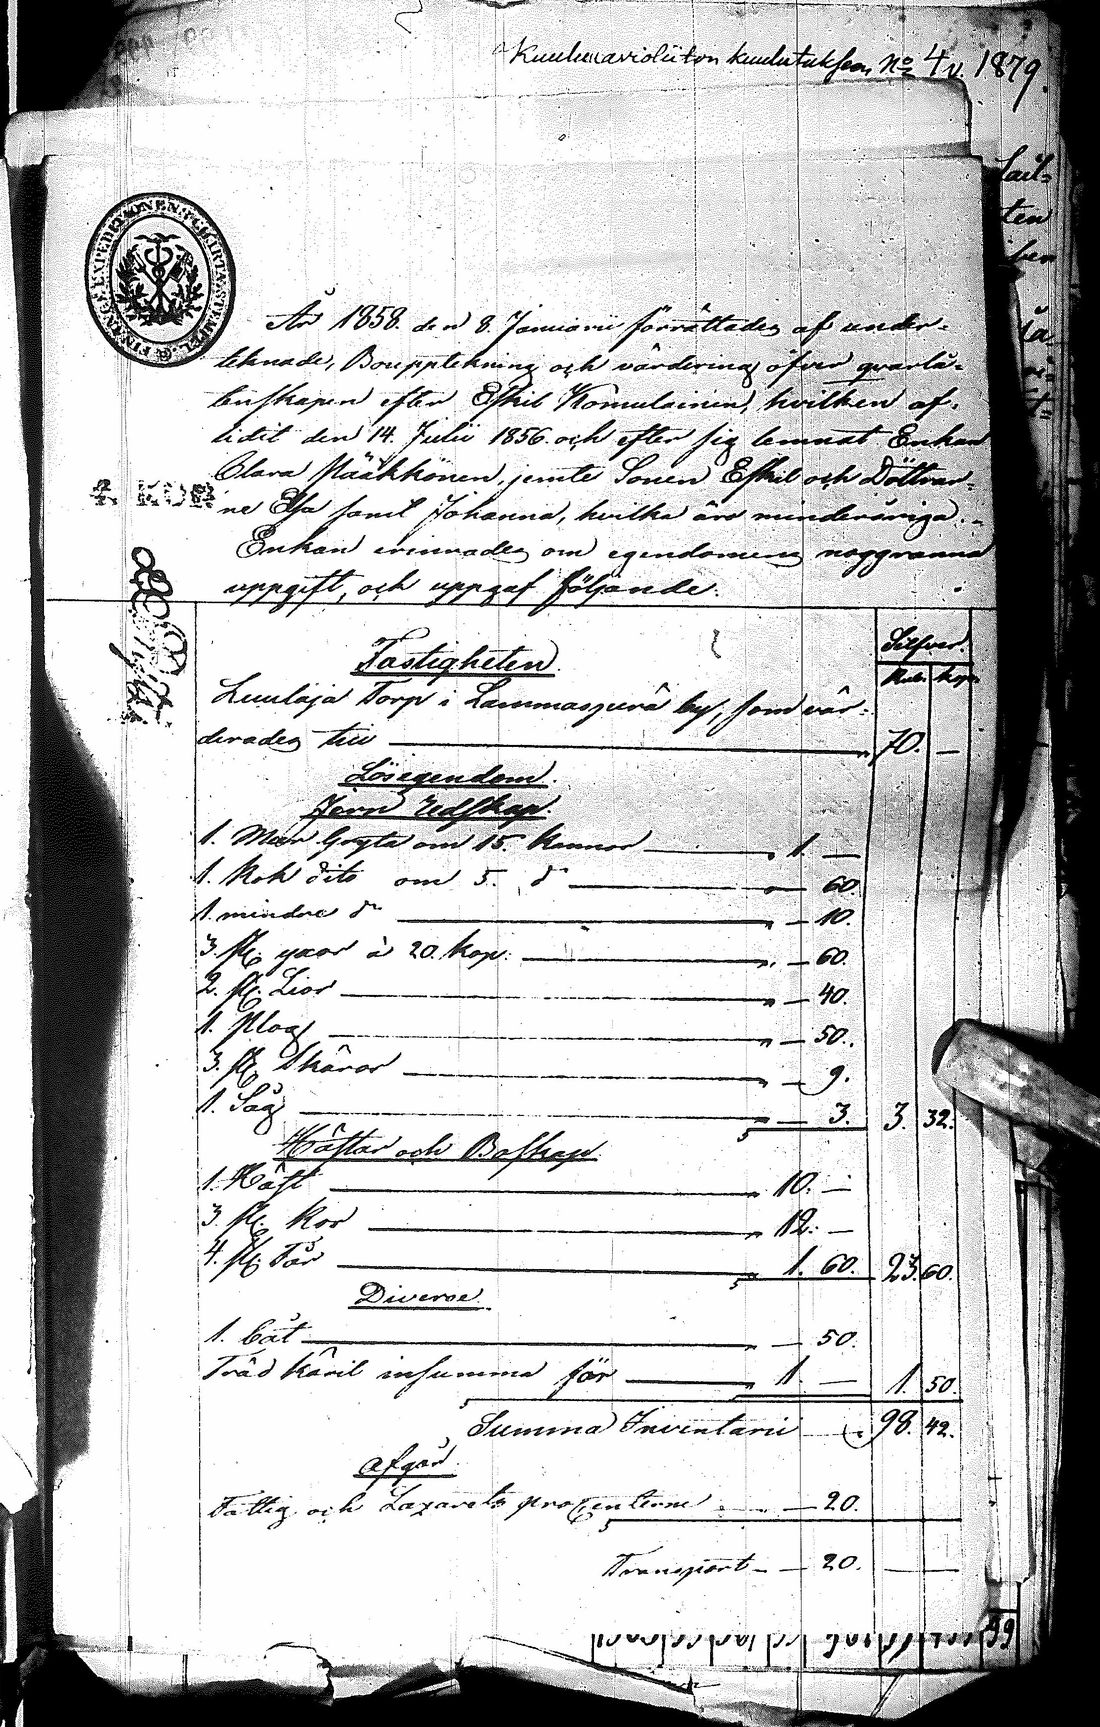 Kuulutuksen No 4 v. 1879.
FINANCE EXPEDITIONENS CHARTÆ STEMPEL
År 1858. den 8. Januarii förrättades af under-
teknade, Boupptekning och värdering öfver qvarlå-
tenskapen efter Eskil Komulainen, hvilken af-
lidit den 14. Julii 1856. och efter sig lemnat Enkan
Clara Pääkkönen, jemte Sonen Eskil och Döttrar-
ne Elsa samt Johanna, hvilka äro minderåriga. -
Enkan erinrades om egendomens noggranna
uppgift, och uppgaf följande.
4. KOP
Silfver.
Rub. kop.
Fastigheten
Luulaja Torp i Lammasperä by, som vär-
derades till 70. —
Lösegendom.
Jern Redskap.
1. Mur Gryta om 15. kannor 1. —
1. Kok dito om 5. do — 60.
1. mindre do — 10.
3. st. yxor à 20. kop. — 60.
2. st. Liar — 40.
1. Plog — 50.
3. st. Skäror — 9.
1. Såg — 3. 3. 32.
Hästar och Boskap.
1. Häst 10. —
3. st. Kor 12. —
4. st. Får 1. 60. 23. 60.
Diverse.
1. båt — 50.
Träd käril insumma för 1. — 1. 50.
Summa Inventarii 98. 42.
Afgår.
Fattig och Lazaretts procenterne — 20.
Transport — 20. —
99